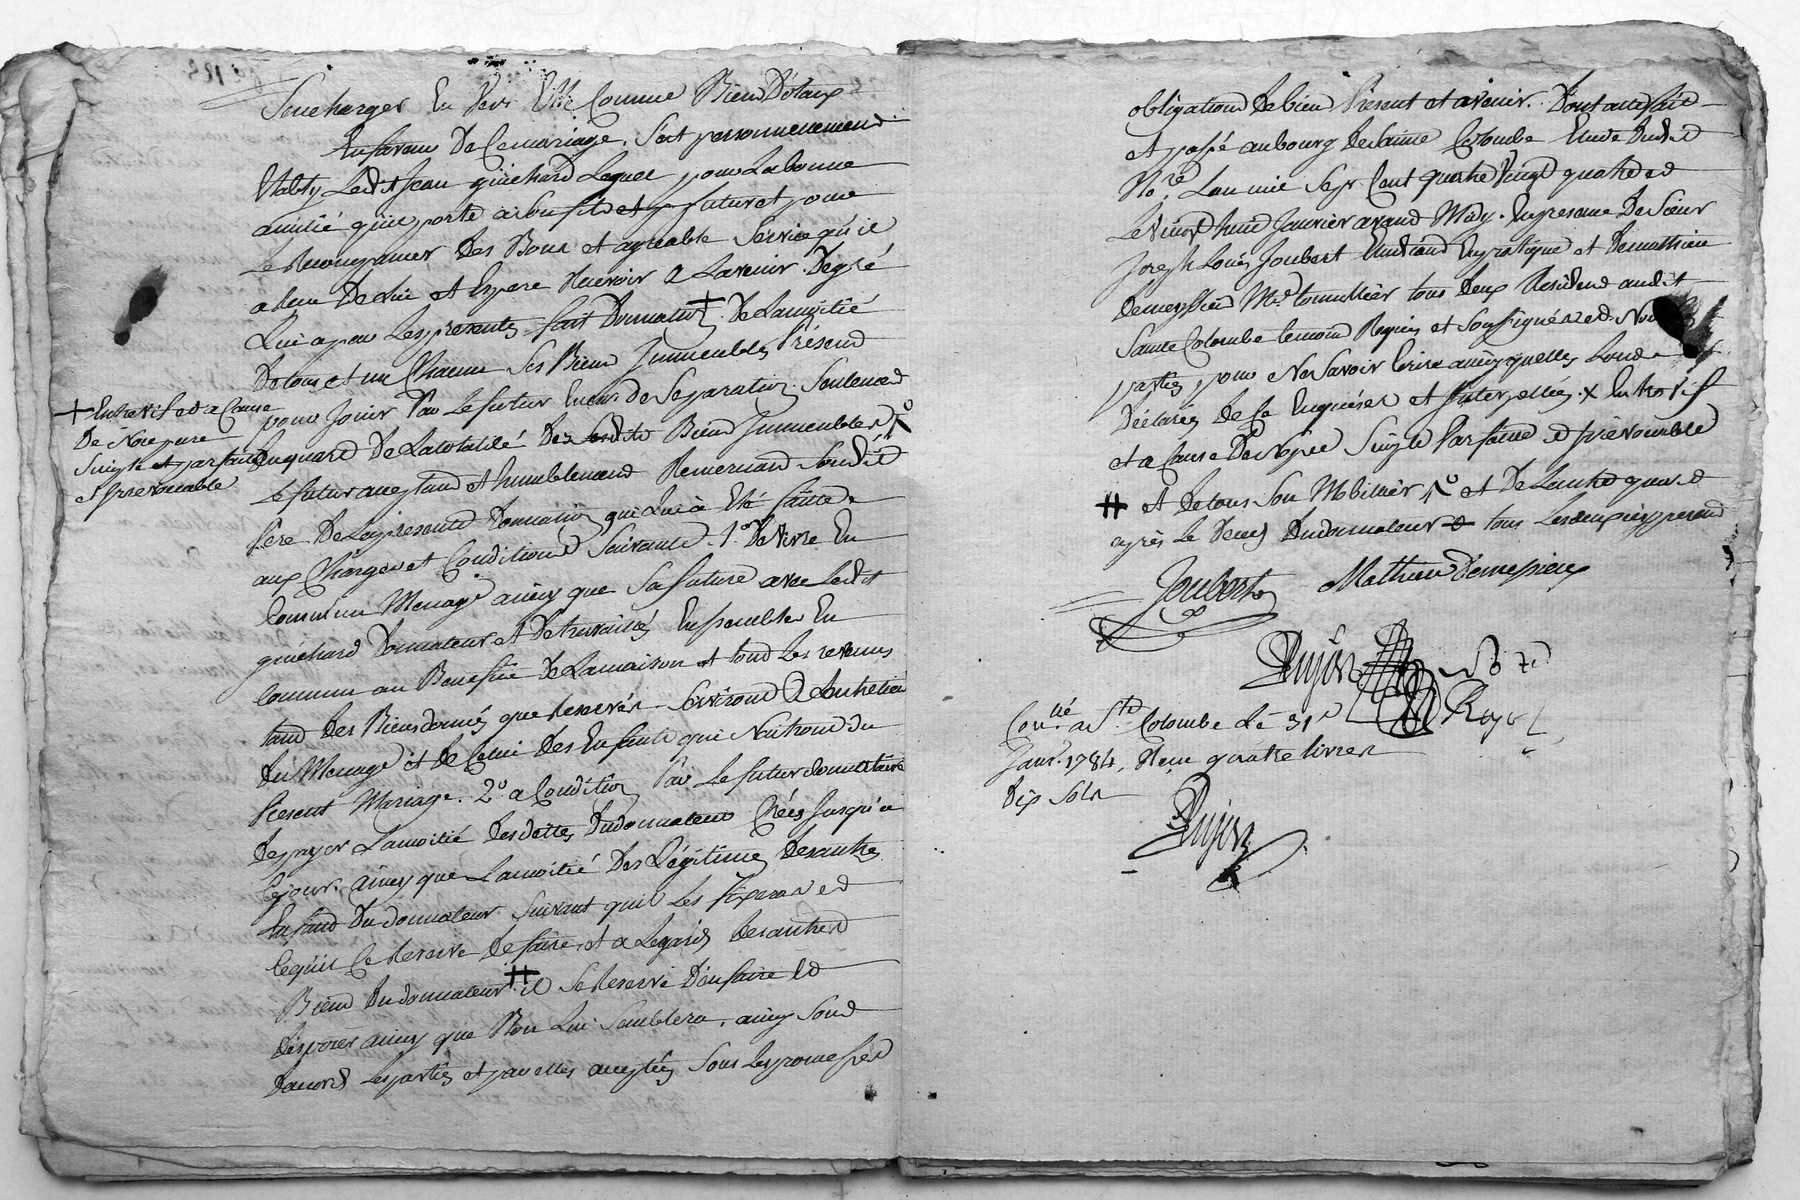 Se Charger En vers Elle Comme Bien Dotaux
En faveur De Ce mariage. S'est personnellement
Etably Ledit Jean guichard Lequel pour La bonne
amitié qu'il porte a Son fils et futur et pour
Le Recompenser Des Bons et agreable Service qu'il
a Reçu De Lui et Espere Recevoir a L'avenir. De gré
Lui a par Les presentes fait Donnation + De La moitié
De tous et un Chacun Ses Biens Immeubles Présent
pour Jouir Par Le futur En cas de Separation Seulement
+ Entre vif et a Cause
De Noce pure
Simple et parfaite
et Irrevocable
Du quart De La totalité Des Susdits Biens Immeubles
Le futur acceptant et humblement Remerciant Sondit
Pere De La presente Donnation qui Lui a Eté faitte
aux Charges et Conditions Suivante. 1.° De Vivre En
Commun Menage ainsy que Sa future avec Ledit
guichard Donnateur et De travailler Ensemble En
Commun au Benefice De La maison et tous Les revenus
tant Des Biens donnés que Reservés Serviront a L'entretien
Du Menage et De Celui Des Enfants qui Naitront du
Present Mariage. 2.° a Condition Par Le futur donnataire
De payer La moitié Des dettes Du donnateur Créés Jusqu'a
Ce jour. ainsy que La moitié Des Légitimes Des autres
Enfants Du donnateur Suivant qu'il Les fixera et
Ce qu'il Se Reserve De faire, et a L'egard Des autres
Biens Du donnateur ⧺ il Se Reserve D'en faire Et
Disposer ainsy que Bon Lui Semblera, ainsy Sont
D'accord Les parties et par elles acceptés Sous Les promesses
obligations De bien Présent et avenir. Dont acte fait
et passé au bourg De Sainte Colombe Etude Dudit
No.re L'an mil Sept Cent quatre Vingt quatre et
Le vingt huit Janvier avant Midy. En presence De Sieur
Joseph Louis Joubert Etudiant En pratique et De mathieu
Demessieux Md tonnellier tous Deux Résident audit
Sainte Colombe temoins Requis et Soussignés et Non Les
parties pour Ne Savoir Ecrire ainsy qu'elles L'ont
Déclarés De Ce Enquises et Interpellées. x Entre vif
et a Cause De Nopce Simple Parfaite et Irrévocable
⧺ et De tous Son Mobillier et De L'autre quart
après Le Deces Du donnateur tous Les deux approuvé
Joubert Mathieu Demessieux
Dujon
Con.llé a Ste Colombe Le 31e
Janv. 1784. Reçu quatre livres
Dix Sols
Dujon